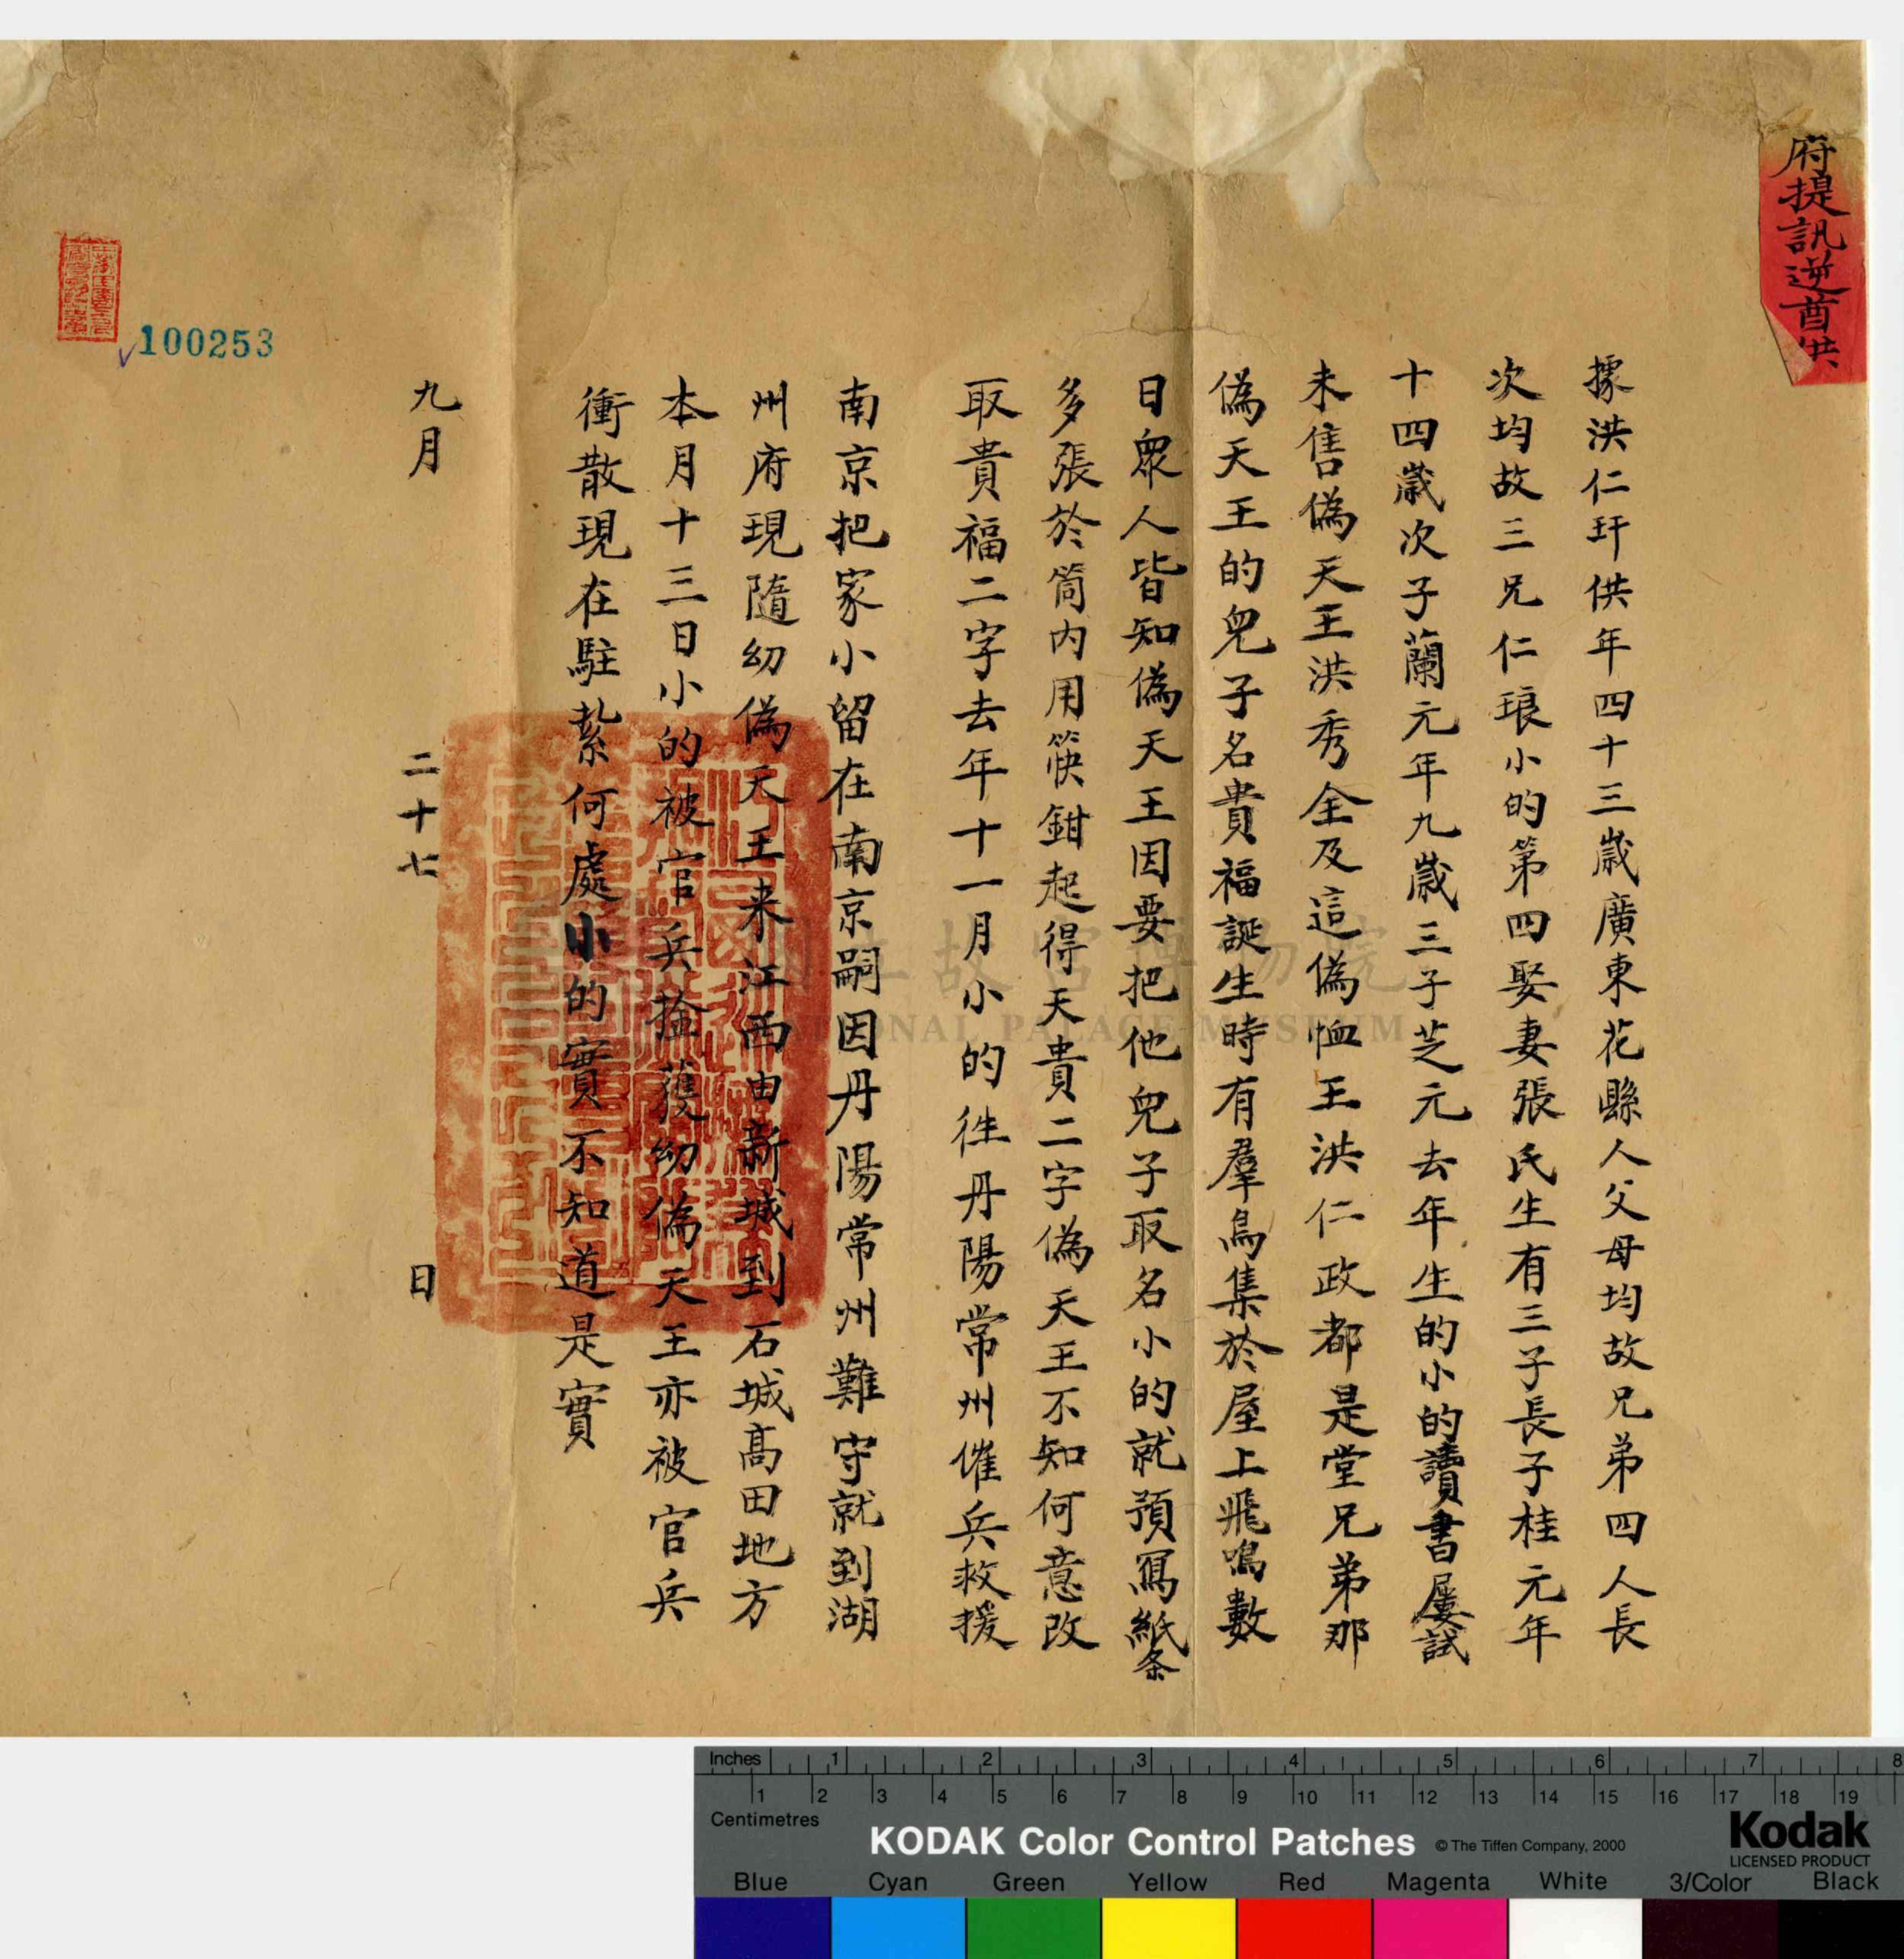 府提訊逆酋供
據洪仁玕供年四十三歲廣東花縣人父母均故兄弟四人長
次均故三兄仁琅小的第四娶妻張氏生有三子長子桂元年
十四歲次子蘭元年九歲三子芝元去年生的小的讀書屢試
未售偽天王洪秀全及這偽恤王洪仁政都是堂兄弟那
偽天王的兒子名貴福誕生時有羣鳥集於屋上飛鳴數
日眾人皆知偽天王因要把他兒子取名小的就預寫紙条
多張於筒內用筷鉗起得天貴二字偽天王不知何意改
取貴福二字去年十一月小的徃丹陽常州催兵救援
南京把家小留在南京嗣因丹陽常州難守就到湖
州府現隨幼偽天王来江西由新城到石城高田地方
本月十三日小的被官兵擒獲幼偽天王亦被官兵
衝散現在駐紮何處小的實不知道是實
九月 二十七 日
100253
國立故宮博物院
NATIONAL PALACE MUSEUM
Inches 1 2 3 4 5 6 7 8
1 2 3 4 5 6 7 8 9 10 11 12 13 14 15 16 17 18 19
Centimetres
KODAK Color Control Patches © The Tiffen Company, 2000 Kodak
LICENSED PRODUCT
Blue Cyan Green Yellow Red Magenta White 3/Color Black